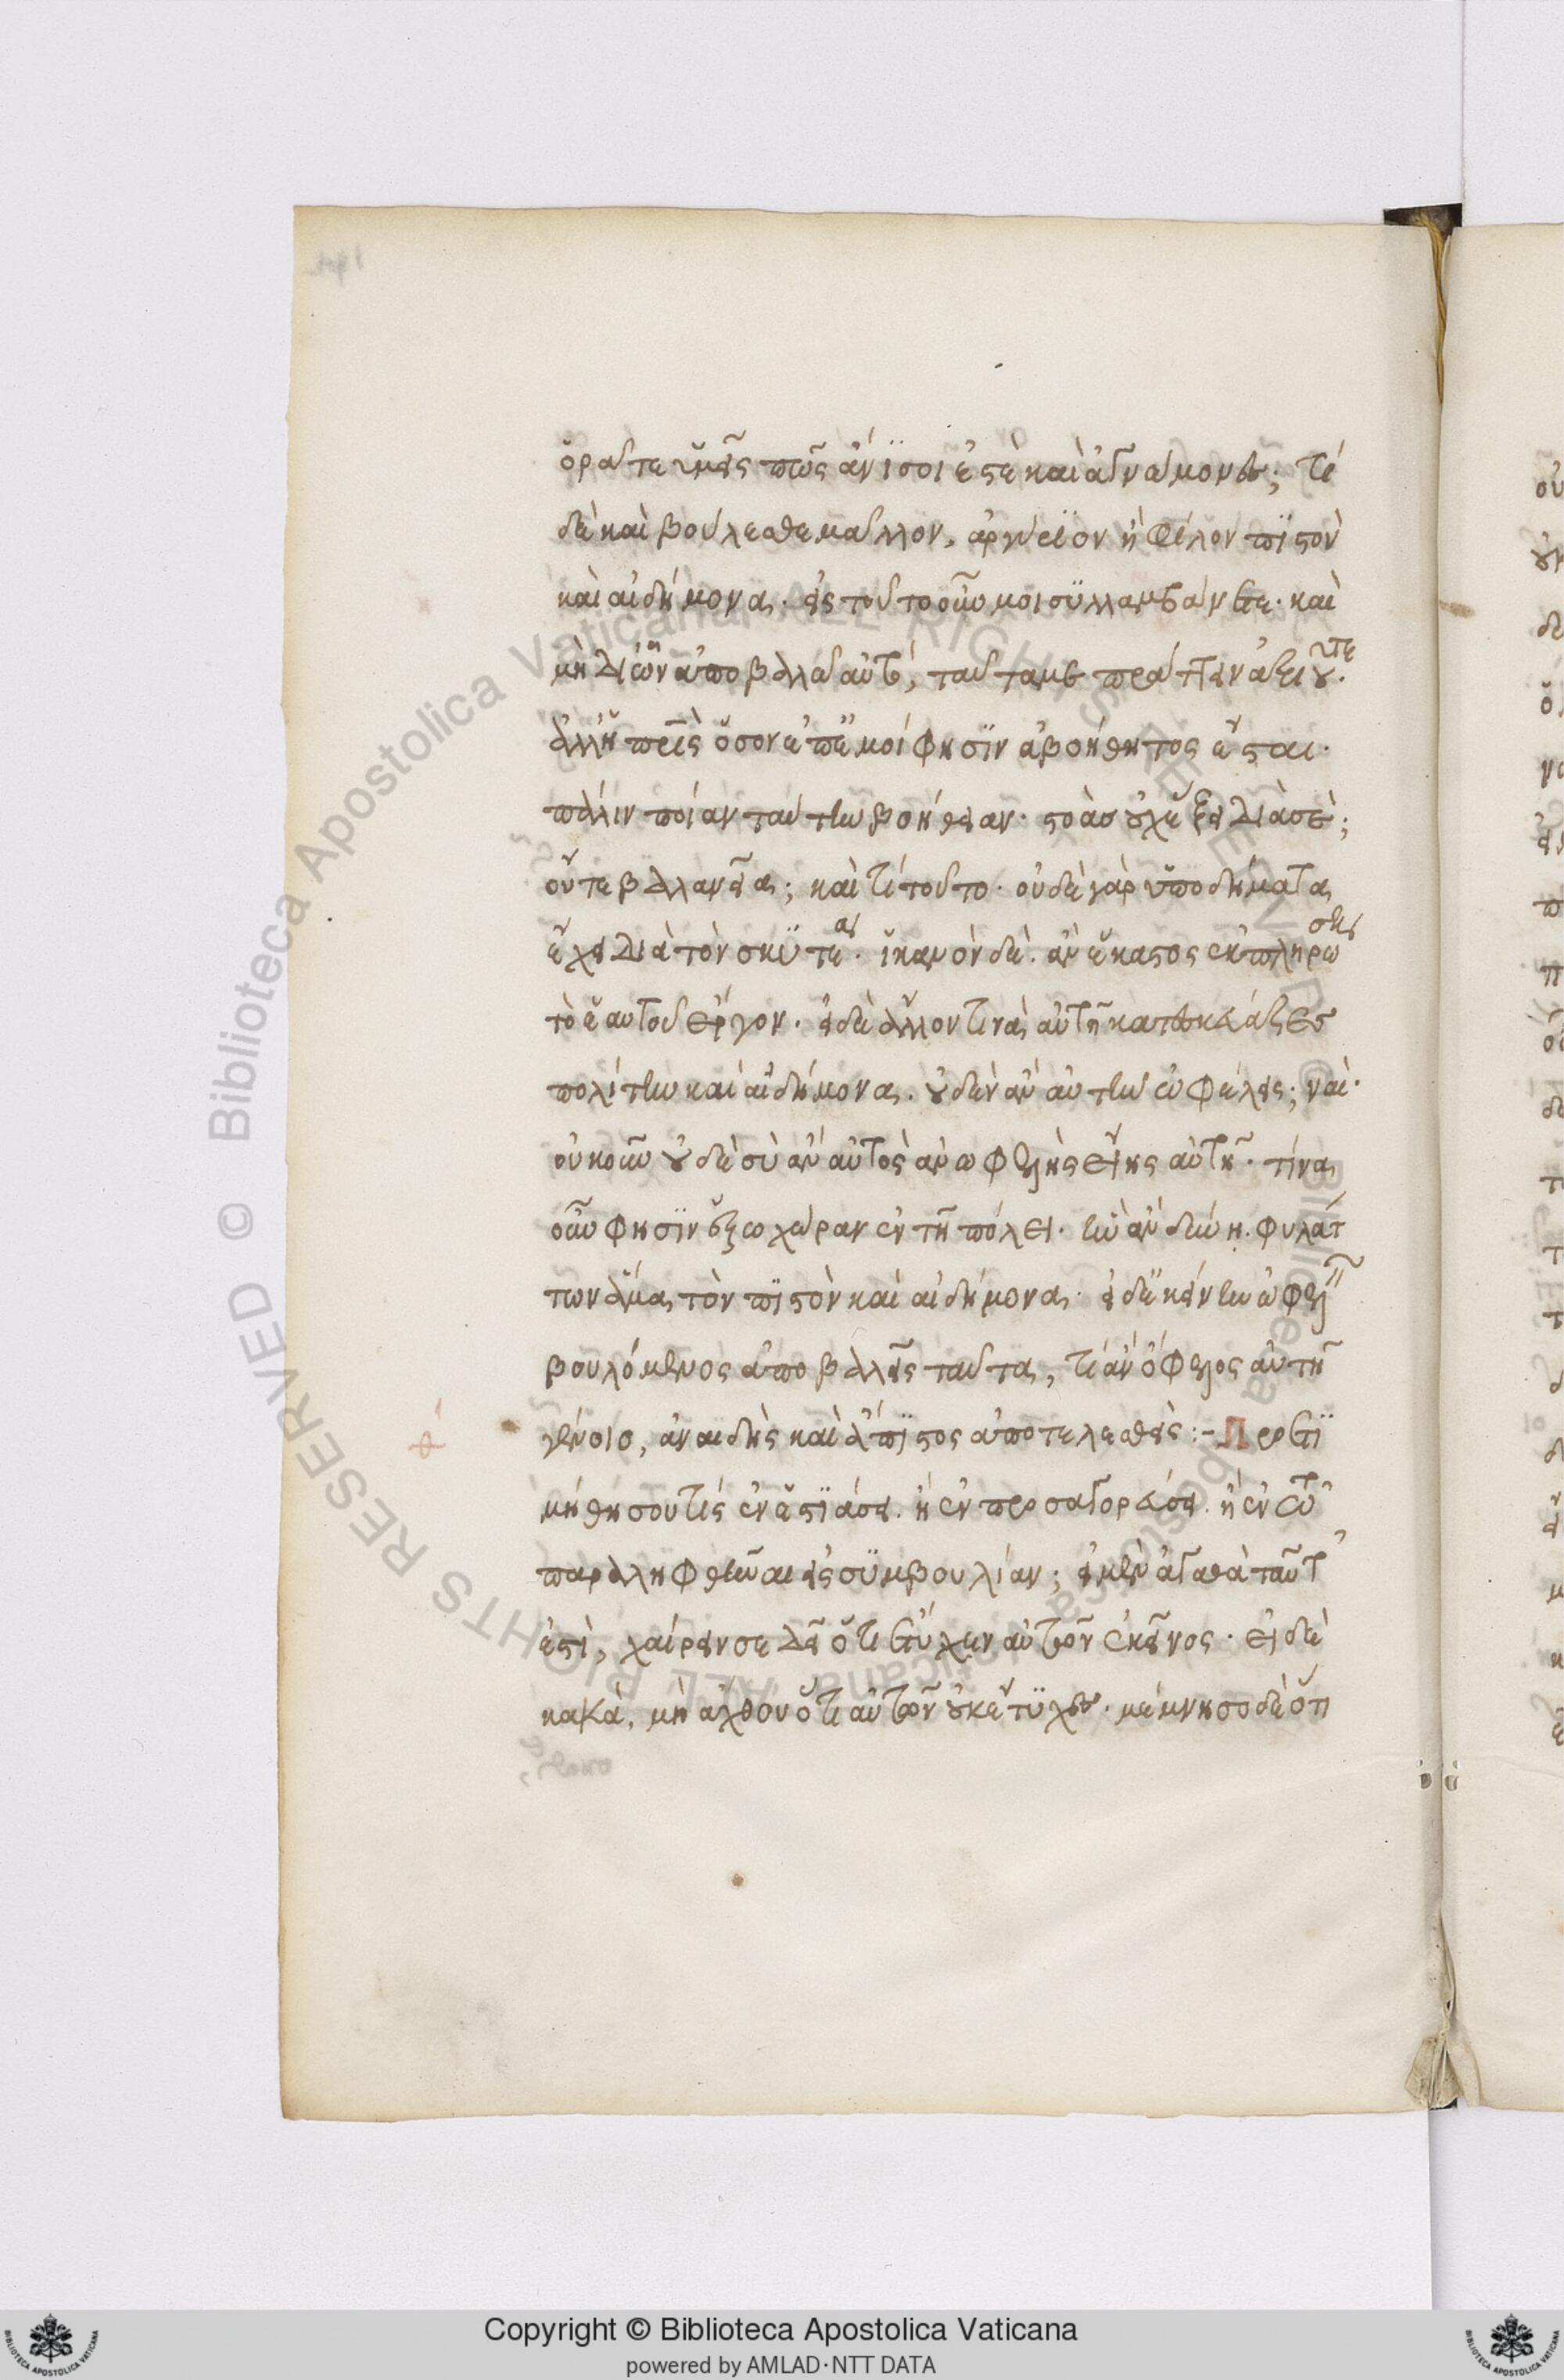 ὁρᾶτε ὑμεῖς πῶς ἄνισοί ἐστε καὶ ἀγνώμονες; τί
δὲ καὶ βούλεσθε μᾶλλον. ἀργύριον ἢ φίλον πιστὸν
καὶ αἰδήμονα. εἰς τοῦτο οὖν μοι συλλαμβάνετε. καὶ
μὴ δι' ὧν ἀποβάλλω αὐτὰ, ταῦτά με πράττειν ἀξιοῦτε.
ἀλλ' ἡ πατρὶς ὅσον ἐπ' ἐμοί φησιν ἀβοήθητος ἔσται.
πάλιν ποίαν ταύτην βοήθειαν. στοὰς οὐχ ἕξει διὰ σὲ;
οὔτε βαλανεῖα; καὶ τί τοῦτο. οὐδὲ γὰρ ὑποδήματα
ἔχει διὰ τὸν σκυτέα. ἱκανὸν δὲ. ἂν ἕκαστος ἐκπληρώσῃ
τὸ ἑαυτοῦ ἔργον. εἰ δὲ ἄλλον τινὰ αὐτῇ κατεσκεύαζες
πολίτην καὶ αἰδήμονα. οὐδὲν ἂν αὐτὴν ὠφέλεις; ναί.
οὐκοῦν οὐδὲ σὺ ἂν αὐτὸς ἀνωφελὴς εἴης αὐτῇ. τίνα
οὖν φησιν ἕξω χώραν ἐν τῇ πόλει. ἣν ἂν δύνῃ. φυλάτ
των ἅμα τὸν πιστὸν καὶ αἰδήμονα. εἰ δὲ κείνην ὠφελεῖν
βουλόμενος ἀποβαλεῖς ταῦτα, τί ἂν ὄφελος αὐτῇ
γένοιο, ἀναιδὴς καὶ ἄπιστος ἀποτελεσθείς :- Προετι
μήθη σού τις ἐν ἑστιάσει. ἢ ἐν προσαγορεύσει. ἢ ἐν τῷ
παραληφθῆναι εἰς συμβουλίαν; εἰ μὲν ἀγαθὰ ταῦτ'
ἐστὶ, χαίρειν σε δεῖ ὅτι ἔτυχεν αὐτῶν ἐκεῖνος. εἰ δὲ
κακὰ, μὴ ἄχθου ὅτι αὐτῶν οὐκ ἔτυχες. μέμνησο δὲ ὅτι
Copyright © Biblioteca Apostolica Vaticana
powered by AMLAD·NTT DATA